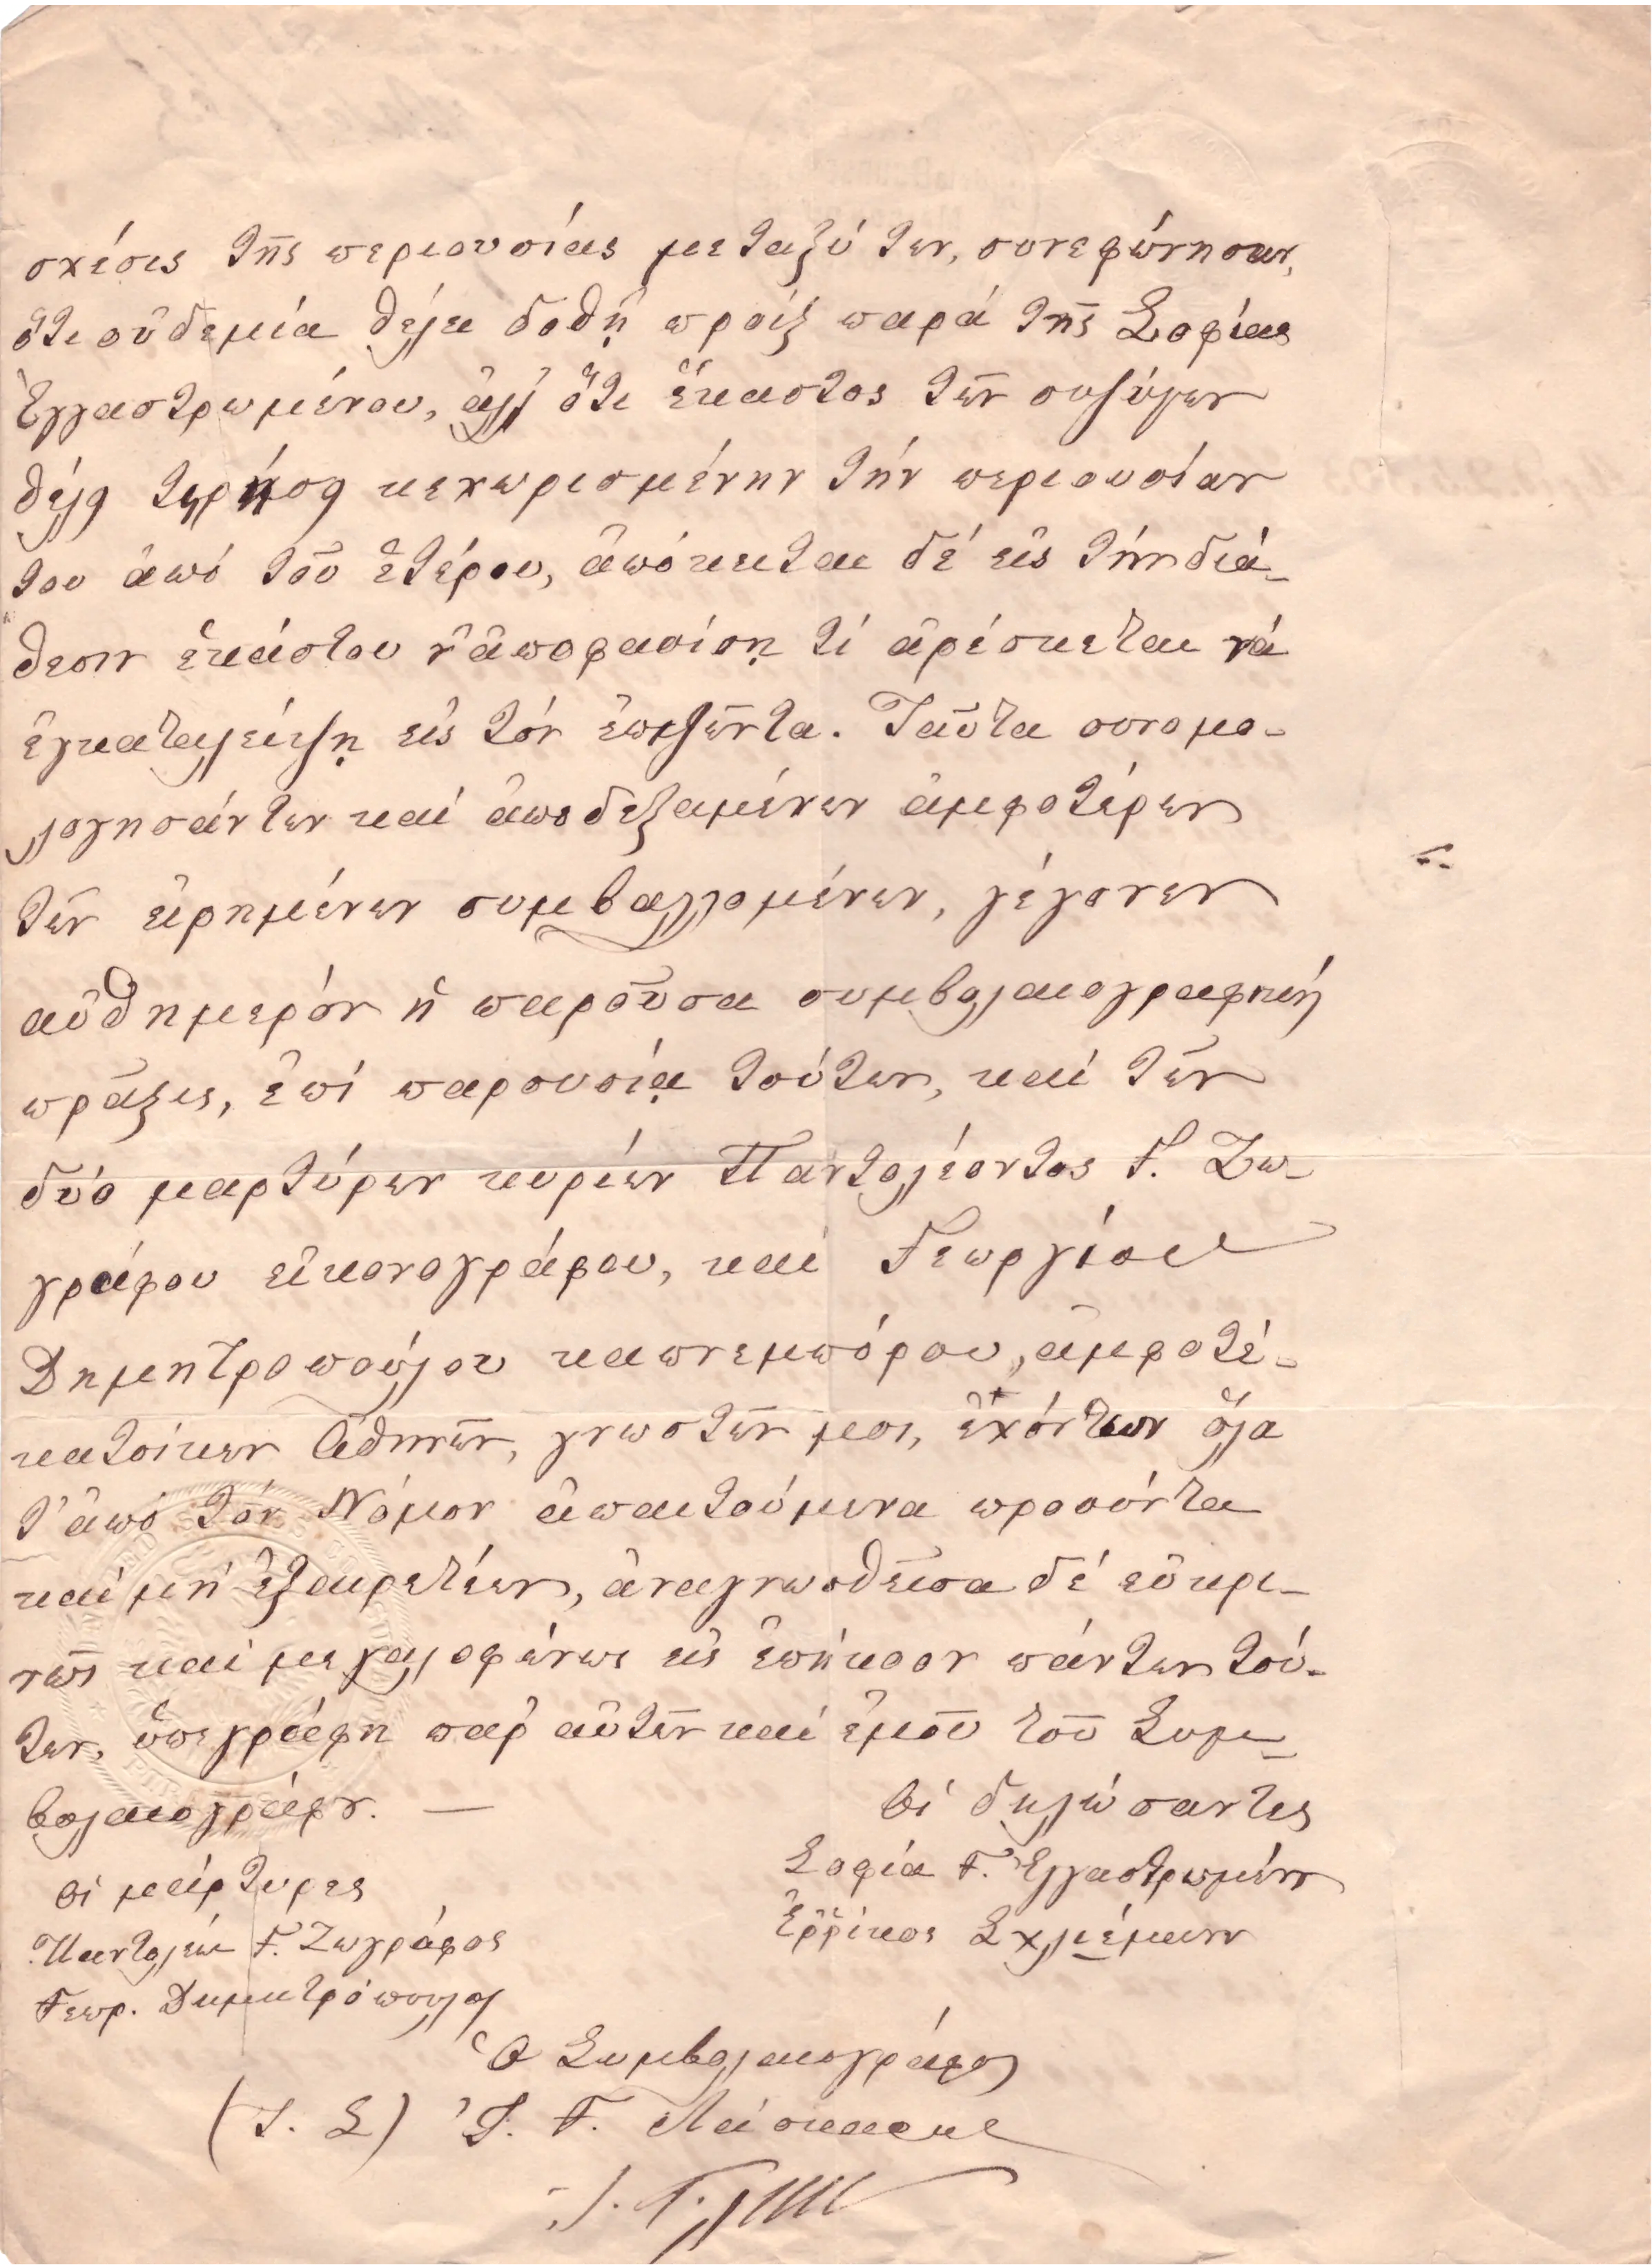 σχέσις τῆς περιουσίας μεταξύ των, συνεφώνησαν,
ὅτι οὐδεμία θέλει δοθῆ προίξ παρά τῆς Σοφίας
Ἐγγαστρωμένου, ἀλλ' ὅτι ἕκαστος τῶν συζύγων
θέλει τηρήσει κεχωρισμένην τήν περιουσίαν
του ἀπό τοῦ ἑτέρου, ἀπόκειται δέ εἰς τήν διά-
θεσιν ἑκάστου ν' ἀποφασίσῃ τί ἀρέσκεται νά
ἐγκαταλείψῃ εἰς τόν ἐπιζῶντα. Ταῦτα συνομο-
λογησάντων καί ἀποδεξαμένων ἀμφοτέρων
τῶν εἰρημένων συμβαλλομένων, γέγονεν
αὐθημερόν ἡ παροῦσα συμβολαιογραφική
πρᾶξις, ἐπί παρουσίᾳ τούτων, καί τῶν
δύο μαρτύρων κυρίων Παντολέοντος Γ. Ζω-
γράφου εἰκονογράφου, καί Γεωργίου
Δημητροπούλου καπνεμπόρου, ἀμφοτέ-
κατοίκων Ἀθηνῶν, γνωστῶν μοι, ἐχόντων ὅλα
τ' ἀπό τόν Νόμον ἀπαιτούμενα προσόντα
καί μή ἐξαιρετέων, ἀναγνωσθεῖσα δέ εὐκρι-
νῶς καί μεγαλοφώνως εἰς ἐπήκοον πάντων τού-
των, ὑπεγράφη παρ' αὐτῶν καί ἐμοῦ τοῦ Συμ-
βολαιογράφου. —
Οἱ δηλώσαντες
Σοφία Γ. Ἐγγαστρωμένου
Ἐρρίκος Σχλιέμανν
Οἱ μάρτυρες
Παντολέων Γ. Ζωγράφος
Γεωρ. Δημητρόπουλος
Ὁ Συμβολαιογράφος
(Τ. Σ) Ἰ. Γ. Λάσκαρις